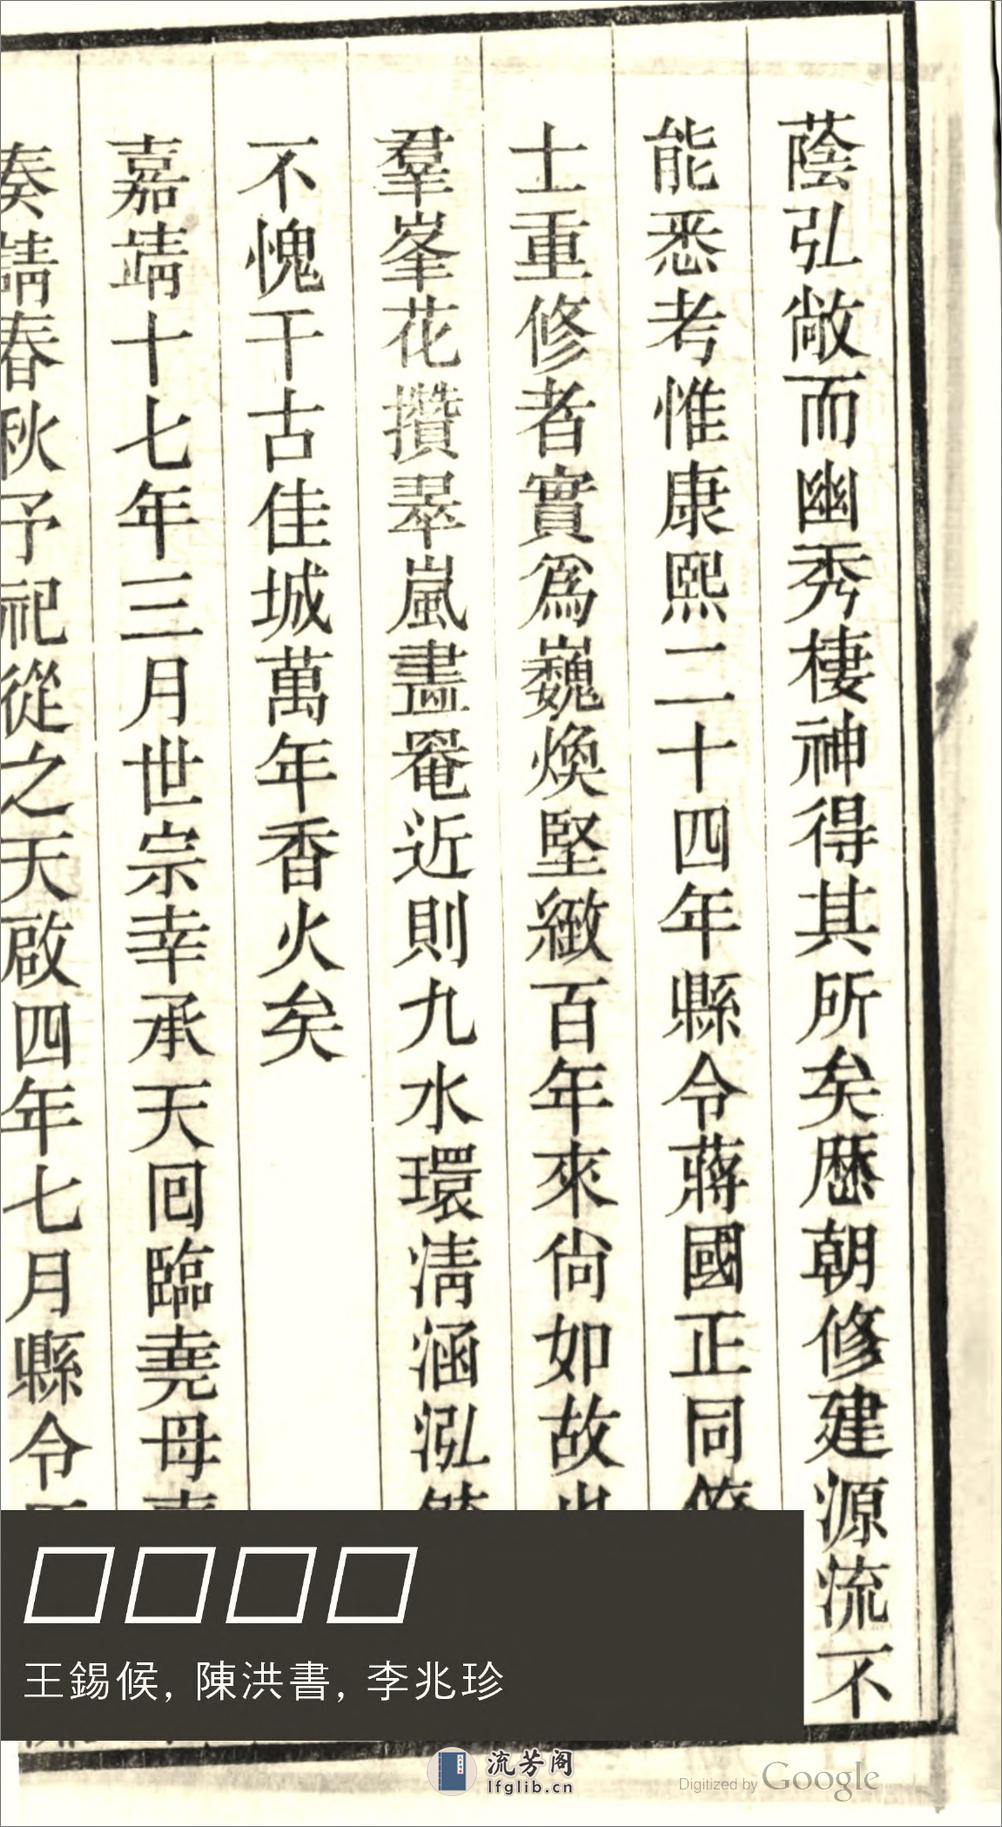 蔭弘敞而幽秀棲神得其所矣歴朝修建源流不
能悉考惟康熙二十四年縣令蔣國正同
士重修者實爲巍煥堅緻百年來尙如故
羣峯花攢翠嵐盡罨近則九水環淸涵泓
不愧千古佳城萬年香火矣
嘉靖十七年三月世宗幸承天囘臨堯母
奏請春秋予祀從之天啟四年七月縣令
□□□□
王錫候, 陳洪書, 李兆珍
流芳阁
lfglib.cn
Digitized by Google